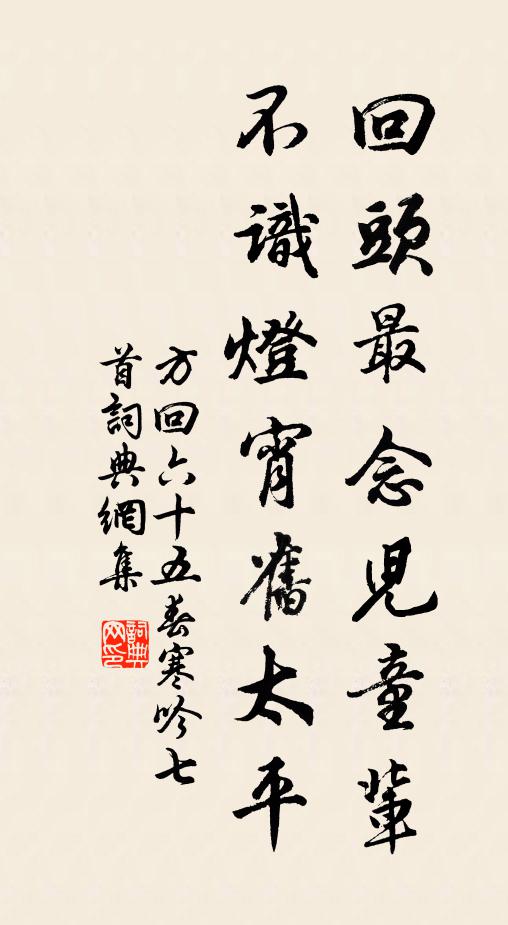 回頭最念児童輩
不識燈宵舊太平
方回六十五春寒吟七
首詞典網集
詞典
网印